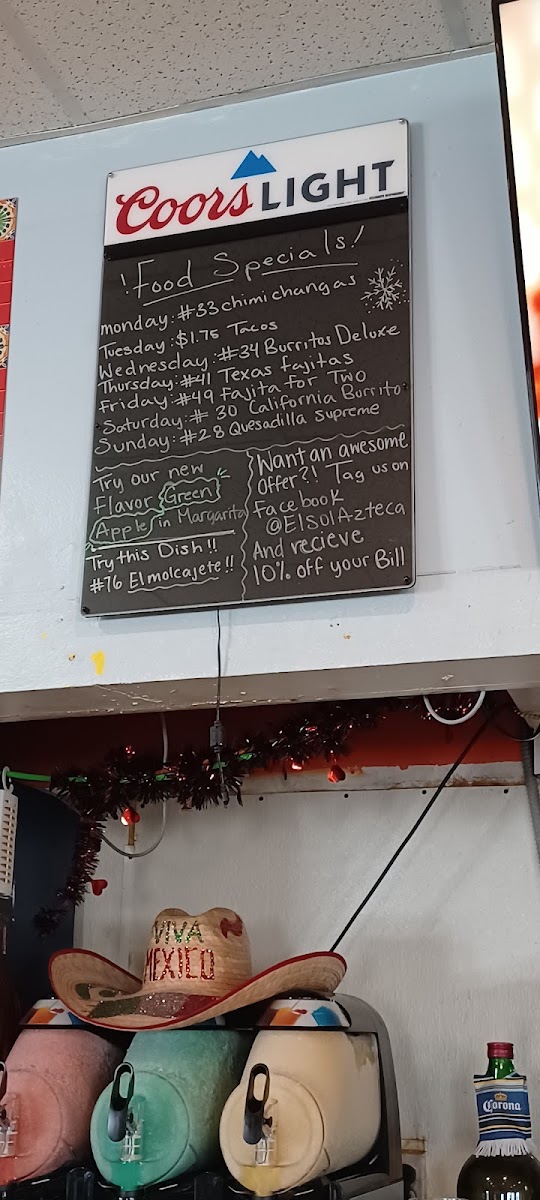 Coors LIGHT
! Food Specials!
monday: #33 chimichangas
Tuesday: $1.75 Tacos
Wednesday: #34 Burritos Deluxe
Thursday: #41 Texas fajitas
Friday: #49 Fajita for Two
Saturday: # 30 California Burrito
Sunday: #28 Quesadilla Supreme
Try our new
Flavor Green
Apple in Margarita
Try this Dish!!
#76 El molcajete!!
Want an awesome
Offer?! Tag us on
Facebook
@ElSolAzteca
And recieve
10% off your Bill
VIVA
MEXICO
Corona